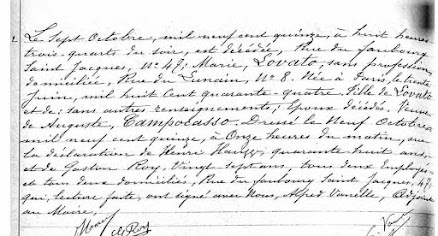 Le Sept Octobre, mil neuf cent quinze, à huit heures
trois-quarts du soir, est décédée, Rue du faubourg
Saint Jacques, N° 47; Marie, Lovato, sans profession
domiciliée, Rue du Lunain, N° 8. Née à Paris, le trente
Juin, mil huit cent quarante-quatre. Fille de Lovato
et de; sans autres renseignements; Epoux décédé. Veuve
de Auguste, Campocasso. Dressé le Neuf Octobre
mil neuf cent quinze, à Onze heures du matin, sur
la déclaration de Henri quarante huit ans,
et de Gaston Roy, Vingt sept ans, tous deux Employés
et tous deux domiciliés, Rue du faubourg Saint Jacques, 47,
qui, lecture faite, ont signé avec Nous, Alfred Adjoint
au Maire,
Roy